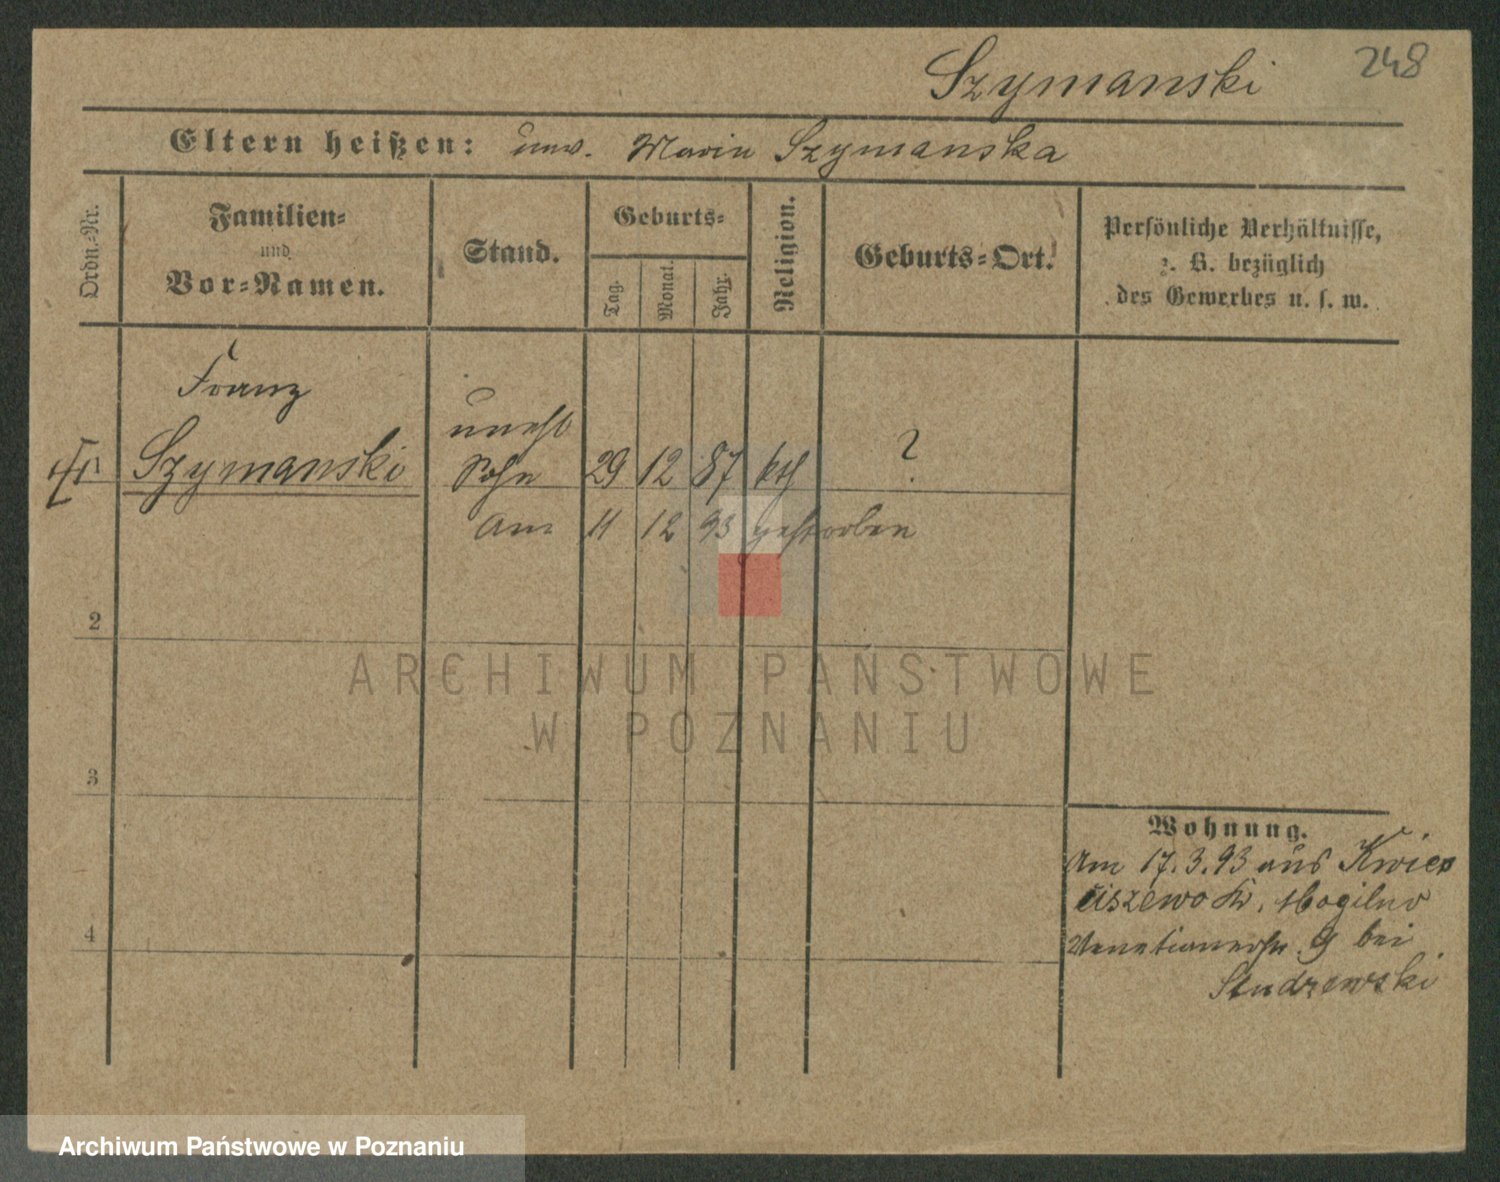 248
Szymanski
Eltern heißen: unv. Maria Szymanska
Ordn.=Nr.
Familien=
und
Vor=Namen.
Stand.
Geburts=
Tag.
Monat.
Jahr.
Religion.
Geburts=Ort.
Persönliche Verhältnisse,
z. B. bezüglich
des Gewerbes u. s. w.
Franz
Szymanski
unehl
Sohn
29 12 87 kth ?
1
am 11 12 93 gestorben
2
3
4
Wohnung.
Am 17.3.93 aus Kwie
ciszewo Kr. Mogilno
Venetianerstr. 9 bei
Studzewski
ARCHIWUM PAŃSTWOWE
W POZNANIU
Archiwum Państwowe w Poznaniu